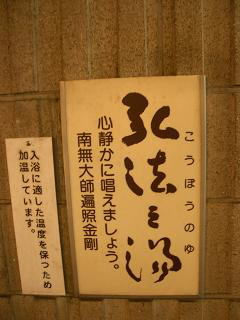 弘法之湯
こうぼうのゆ
心静かに唱えましょう。
南無大師遍照金剛
入浴に適した温度を保つため
加温しています。